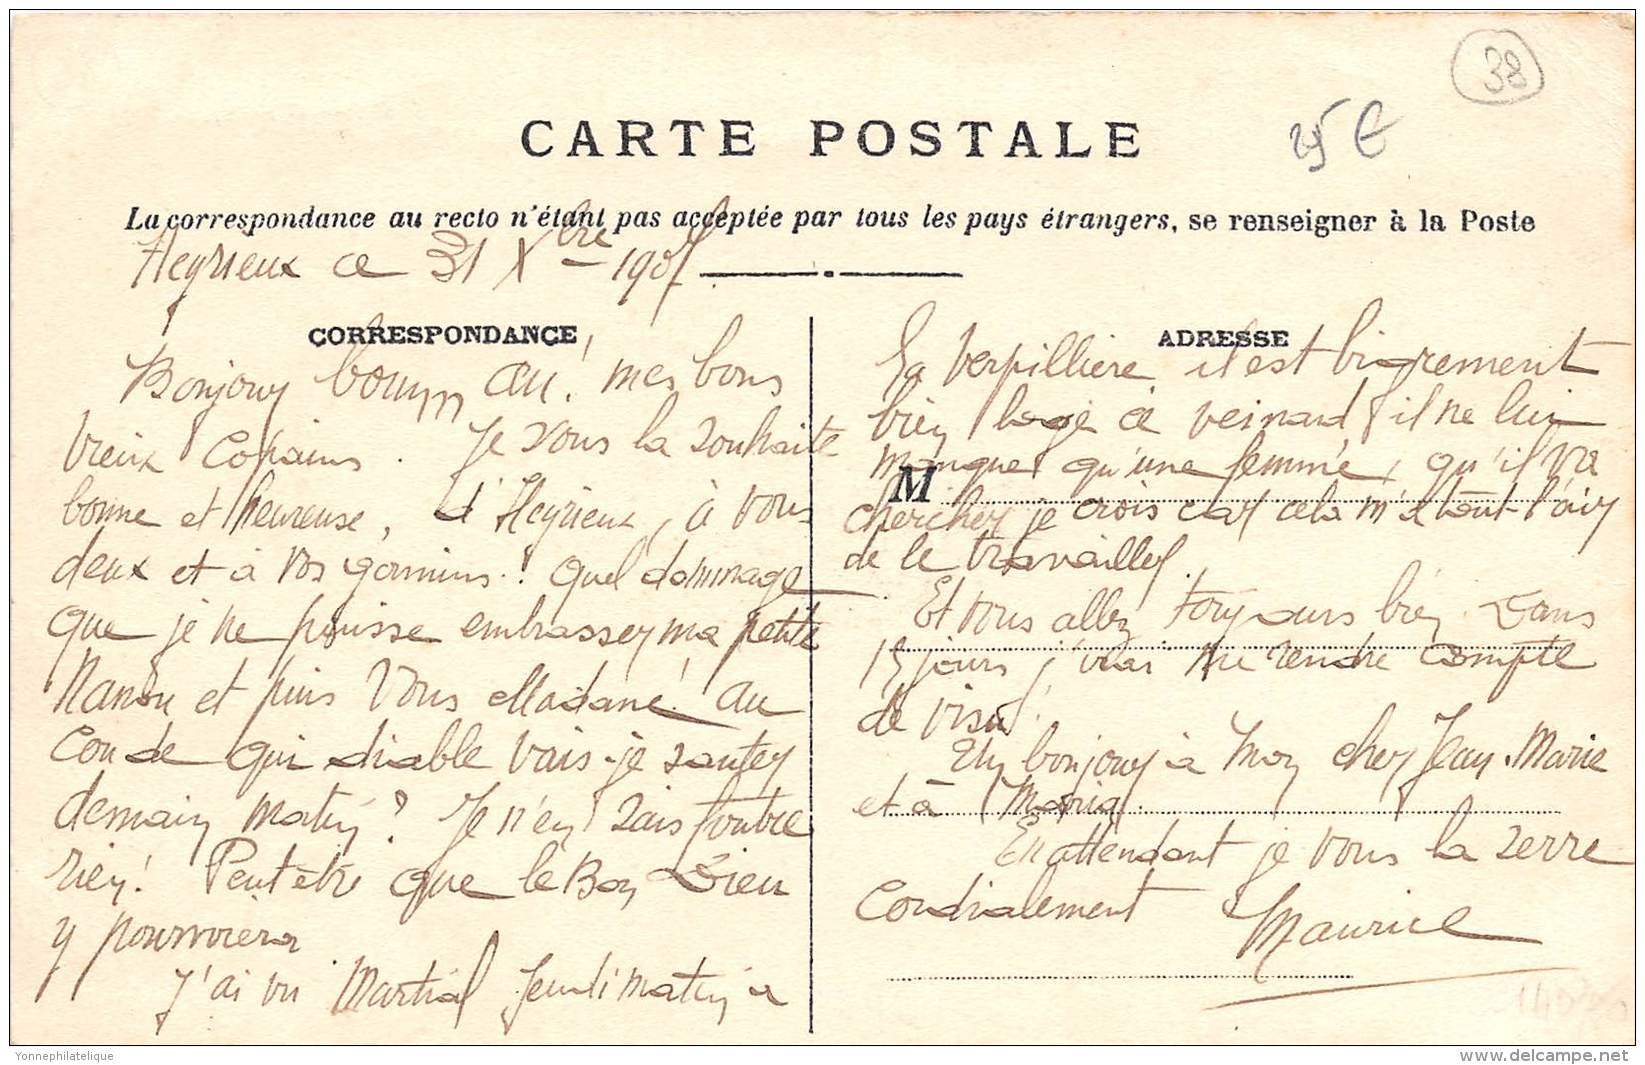 38
25 €
CARTE POSTALE
La correspondance au recto n'étant pas acceptée par tous les pays étrangers, se renseigner à la Poste
Heyrieux ce 31 Xbre 190
CORRESPONDANCE
Bonjour an! mes bons
vieux Copains. Je vous la souhaite
bonne et heureuse, d'Heyrieux, à vous
deux et à vos gamins! Quel dommage
que je ne puisse embrasser ma petite
Nanou et puis Vous Madame! au
Con de qui diable vais-je sauter
demain matin? Je n'en sais foutre
rien! Peut être que le Bon Dieu
y pourvoiera
J'ai vu Martial Jeudi matin à
ADRESSE
La Verpillière il est bigrement
bien logé ce veinard il ne lui
manque qu'une femme, qu'il va
M
chercher je crois car cela m'a tout l'air
de le travailler.
Et vous allez toujours bien. Dans
15 jours j'irai me rendre compte
de visu!
Un bonjour à mon cher Jean-Marie
et à Maria.
En attendant je vous la serre
Cordialement Maurice
Yonnephilatelique
www.delcampe.net